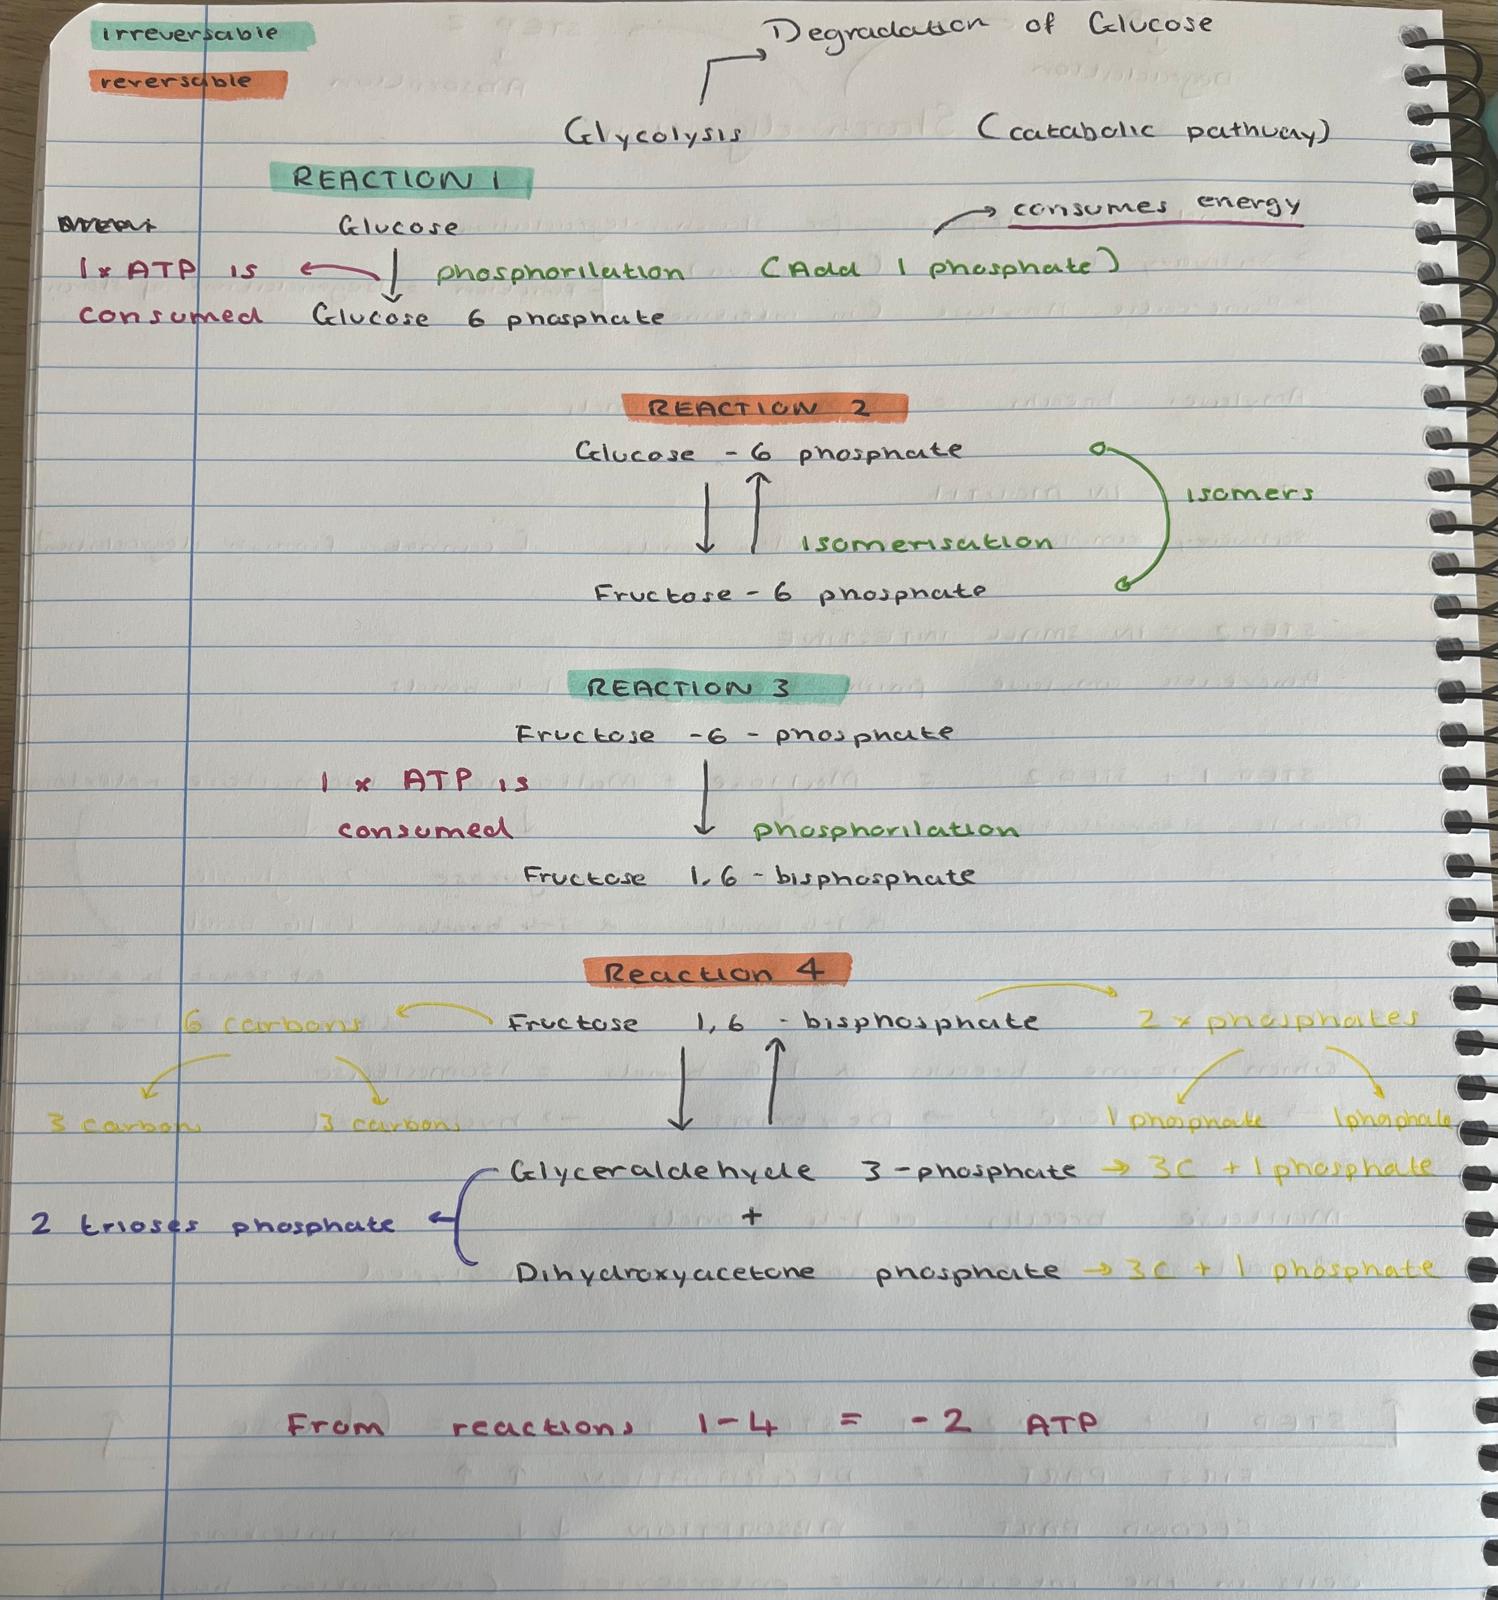 irreversable
Degradation of Glucose
reversable
Glycolysis (catabolic pathway)
REACTION 1
consumes energy
Glucose
1x ATP is phosphorilation (Add 1 phosphate)
consumed Glucose 6 phosphate
REACTION 2
Glucose - 6 phosphate
isomers
isomerisation
Fructose - 6 phosphate
REACTION 3
Fructose - 6 - phosphate
1 x ATP is
consumed phosphorilation
Fructose 1,6 - bisphosphate
Reaction 4
6 carbons Fructose 1,6 - bisphosphate 2 x phosphates
3 carbons 3 carbons 1 phosphate 1 phosphate
Glyceraldehyde 3-phosphate → 3C + 1 phosphate
2 trioses phosphate +
Dihydroxyacetone phosphate → 3C + 1 phosphate
From reactions 1-4 = -2 ATP